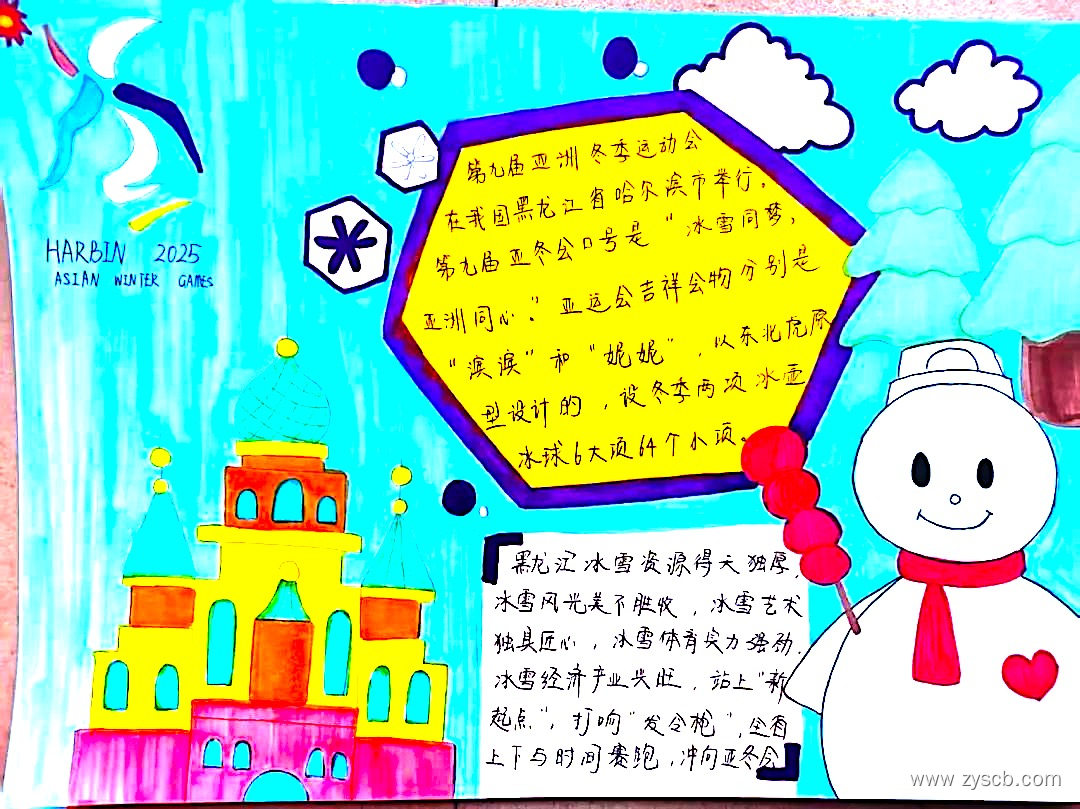 HARBIN 2025
ASIAN WINTER GAMES
第九届亚洲冬季运动会
在我国黑龙江省哈尔滨市举行。
第九届亚冬会口号是“冰雪同梦，
亚洲同心”。亚运会吉祥会物分别是
“滨滨”和“妮妮”，以东北虎原
型设计的，设冬季两项冰壶
冰球6大项64个小项。
黑龙江冰雪资源得天独厚，
冰雪风光美不胜收，冰雪艺术
独具匠心，冰雪体育实力强劲，
冰雪经济产业兴旺，站上“新
起点”，打响“发令枪”，全省
上下与时间赛跑，冲向亚冬会
www.zyscb.com